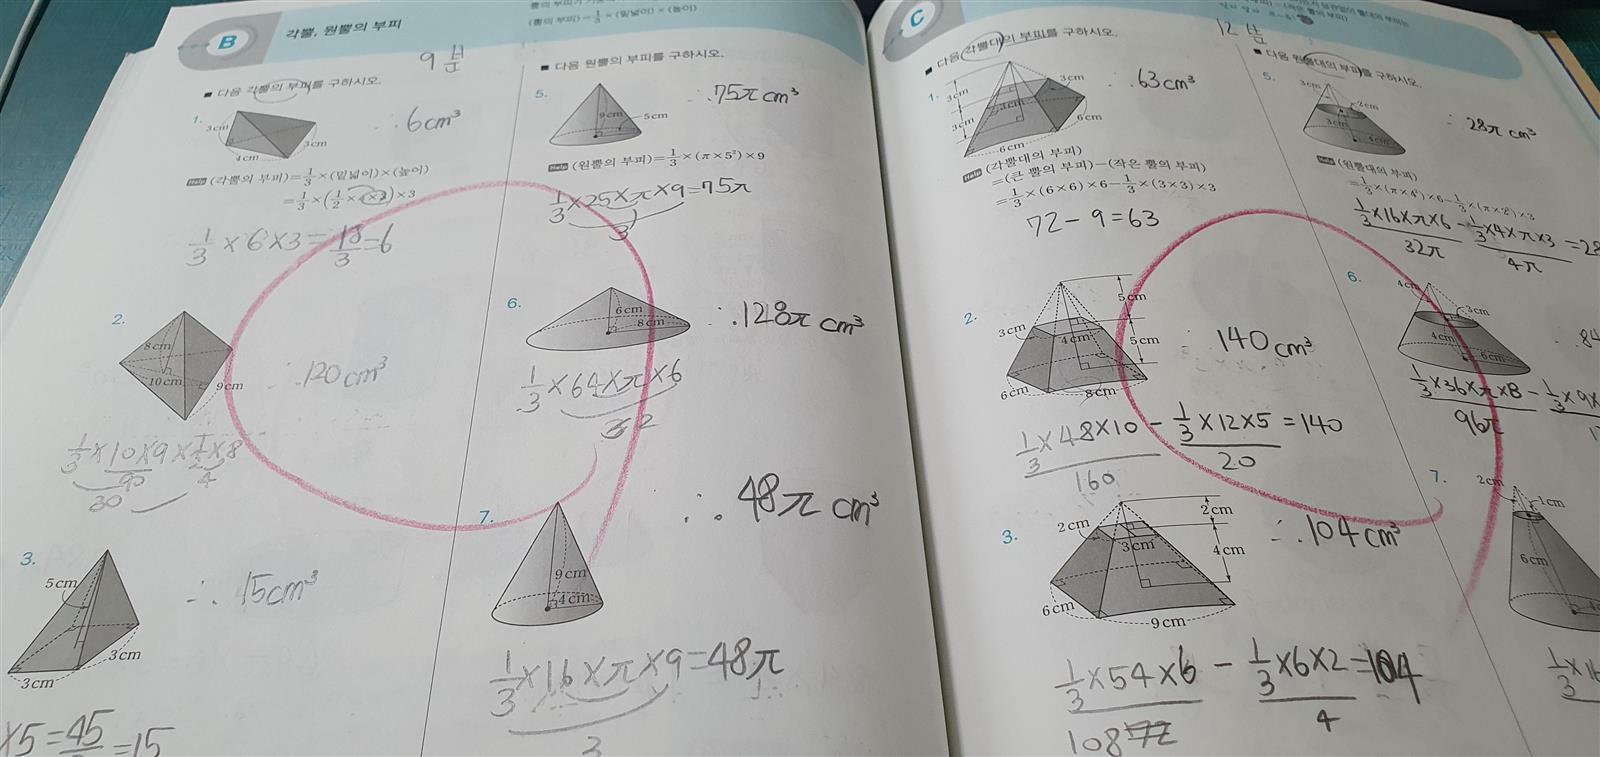 B
각뿔, 원뿔의 부피
(뿔의 부피)=1/3×(밑넓이)×(높이)
9분
■ 다음 각뿔의 부피를 구하시오.
1.
3cm
4cm
3cm
∴ 6cm³
Help (각뿔의 부피)=1/3×(밑넓이)×(높이)
1/3×6×3=18/3=6
2.
8cm
10cm
9cm
∴120cm³
1/3×10×9×1/2×8
90
30
4
3.
5cm
3cm
3cm
∴ 15cm³
×5=45
=15
■ 다음 원뿔의 부피를 구하시오.
5.
9cm
5cm
∴75πcm³
Help (원뿔의 부피)=1/3×(π×5²)×9
1/3×25×π×9=75π
3
6.
6cm
8cm
∴128πcm³
1/3×64×π×6
7.
9cm
4cm
∴48πcm³
1/3×16×π×9=48π
3
C
12분
■ 다음 각뿔대의 부피를 구하시오.
1.
3cm
3cm
3cm
3cm
6cm
6cm
∴63cm³
Help (각뿔대의 부피)
=(큰 뿔의 부피)-(작은 뿔의 부피)
=1/3×(6×6)×6-1/3×(3×3)×3
72-9=63
2.
5cm
3cm
4cm
5cm
6cm
8cm
140cm³
1/3×48×10-1/3×12×5=140
160
20
3.
2cm
2cm
3cm
4cm
6cm
9cm
∴104cm³
1/3×54×6-1/3×6×2=104
108
4
■ 다음 원뿔대의 부피를 구하시오.
5.
3cm
2cm
3cm
4cm
28πcm³
Help (원뿔대의 부피)
=1/3×(π×4²)×6-1/3×(π×2²)×3
1/3×16×π×6-1/3×4×π×3=28
32π
4π
6.
4cm
3cm
4cm
6cm
84
1/3×36×π×8-1/3×9×
96π
7.
2cm
1cm
6cm